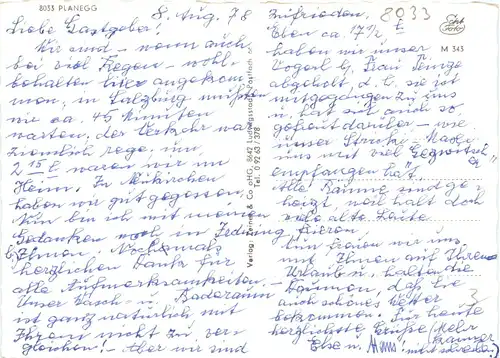 8033 PLANEGG
8. Aug. 78
Liebe Gastgeber!
Wir sind - wenn auch
bei viel Regen - wohl-
behalten hier angekom-
men, in Salzburg mußten
wir ca. 45 Minuten
warten, der Verkehr war
ziemlich rege, um
2 15 waren wir im
Heim. In Neukirchen
haben wir gut gegessen.
Nun bin ich mit meinen
Gedanken noch in Zedning
b. Ihnen. Nochmals
herzlichen Dank für
alle Aufmerksamkeiten.
Unser Wasch- u. Baderaum
ist ganz natürlich mit
Ihrem nicht zu ver-
gleichen! - Aber wir sind
Verlag: Zerreiss & Co oHG, 8642 Ludwigsstadt, Postfach
Tel. 0 92 63 / 378
8033
M 343
zufrieden,
Eben ca 17½
haben wir unser
Vogerl b. Frau
abgeholt, sie ist
mitgegangen zu uns
u. hat sich auch so
gefreut darüber - wie
unser
uns mit viel
empfangen hat.
Alle Räume sind ge-
heizt, weil halt doch
viele alte Leute
frieren.
Nun freuen wir uns
mit Ihnen auf Ihren
Urlaub u. halten die
Daumen, daß Sie
auch schönes Wetter
bekommen. Für heute
herzlichste Grüße
Else u. Hans